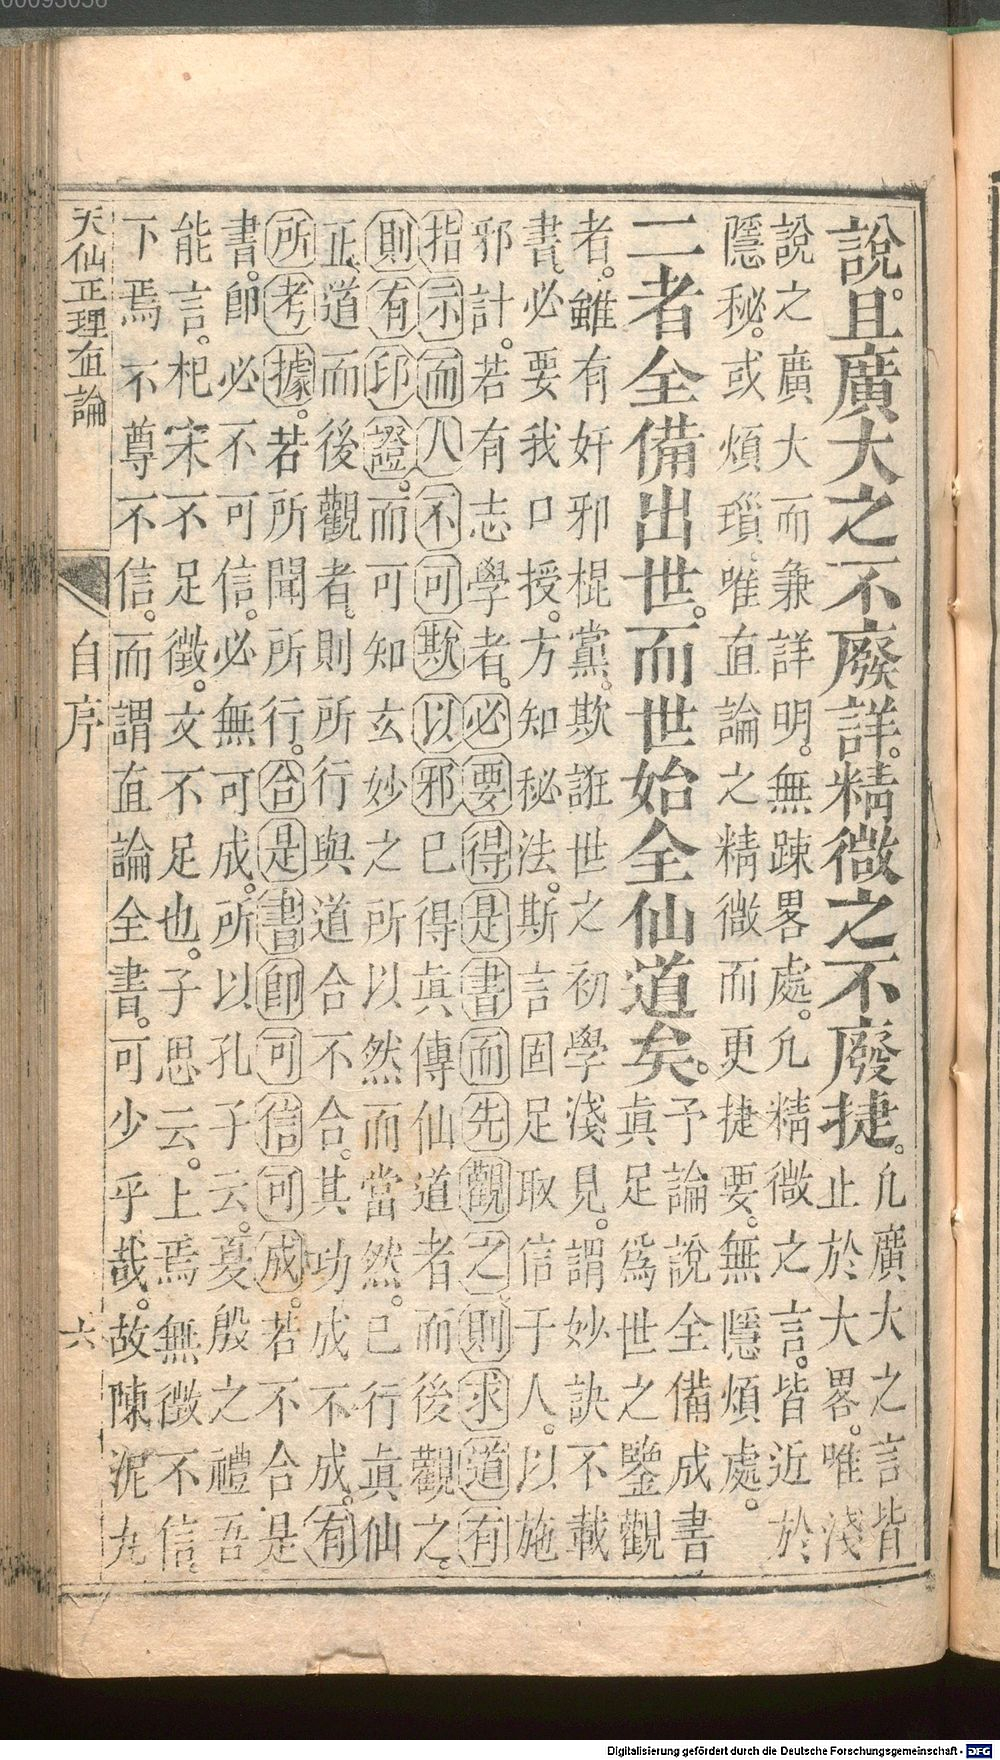 說。且廣大之不廢詳。精微之不廢捷。
凡廣大之言皆
止於大畧。唯淺
說之廣大而兼詳明。無踈畧處。凡精微之言。皆近於
隱秘。或煩瑣。唯直論之精微而更捷要。無隱煩處。
二者全備出世。而世始全仙道矣。
予論說全備成書
眞足爲世之鑒觀
者。雖有奸邪棍黨。欺誑世之初學淺見。謂妙訣不載
書。必要我口授。方知秘法。斯言固足取信于人。以施
邪計。若有志學者。必要得是書而先觀之。則求道有
指示而人不可欺以邪已得眞傳仙道者而後觀之。
則有印證。而可知玄妙之所以然而當然。已行眞仙
正道而後觀者。則所行與道合不合。其功成不成。有
所考據。若所聞所行。合是書卽可信可成。若不合是
書。卽必不可信。必無可成。所以孔子云。夏殷之禮吾
能言。杞宋不足徵。文不足也。子思云。上焉無徵不信。
下焉不尊不信。而謂直論全書。可少乎哉。故陳泥九
天仙正理直論 自序 六
00093056
Digitalisierung gefördert durch die Deutsche Forschungsgemeinschaft - DFG